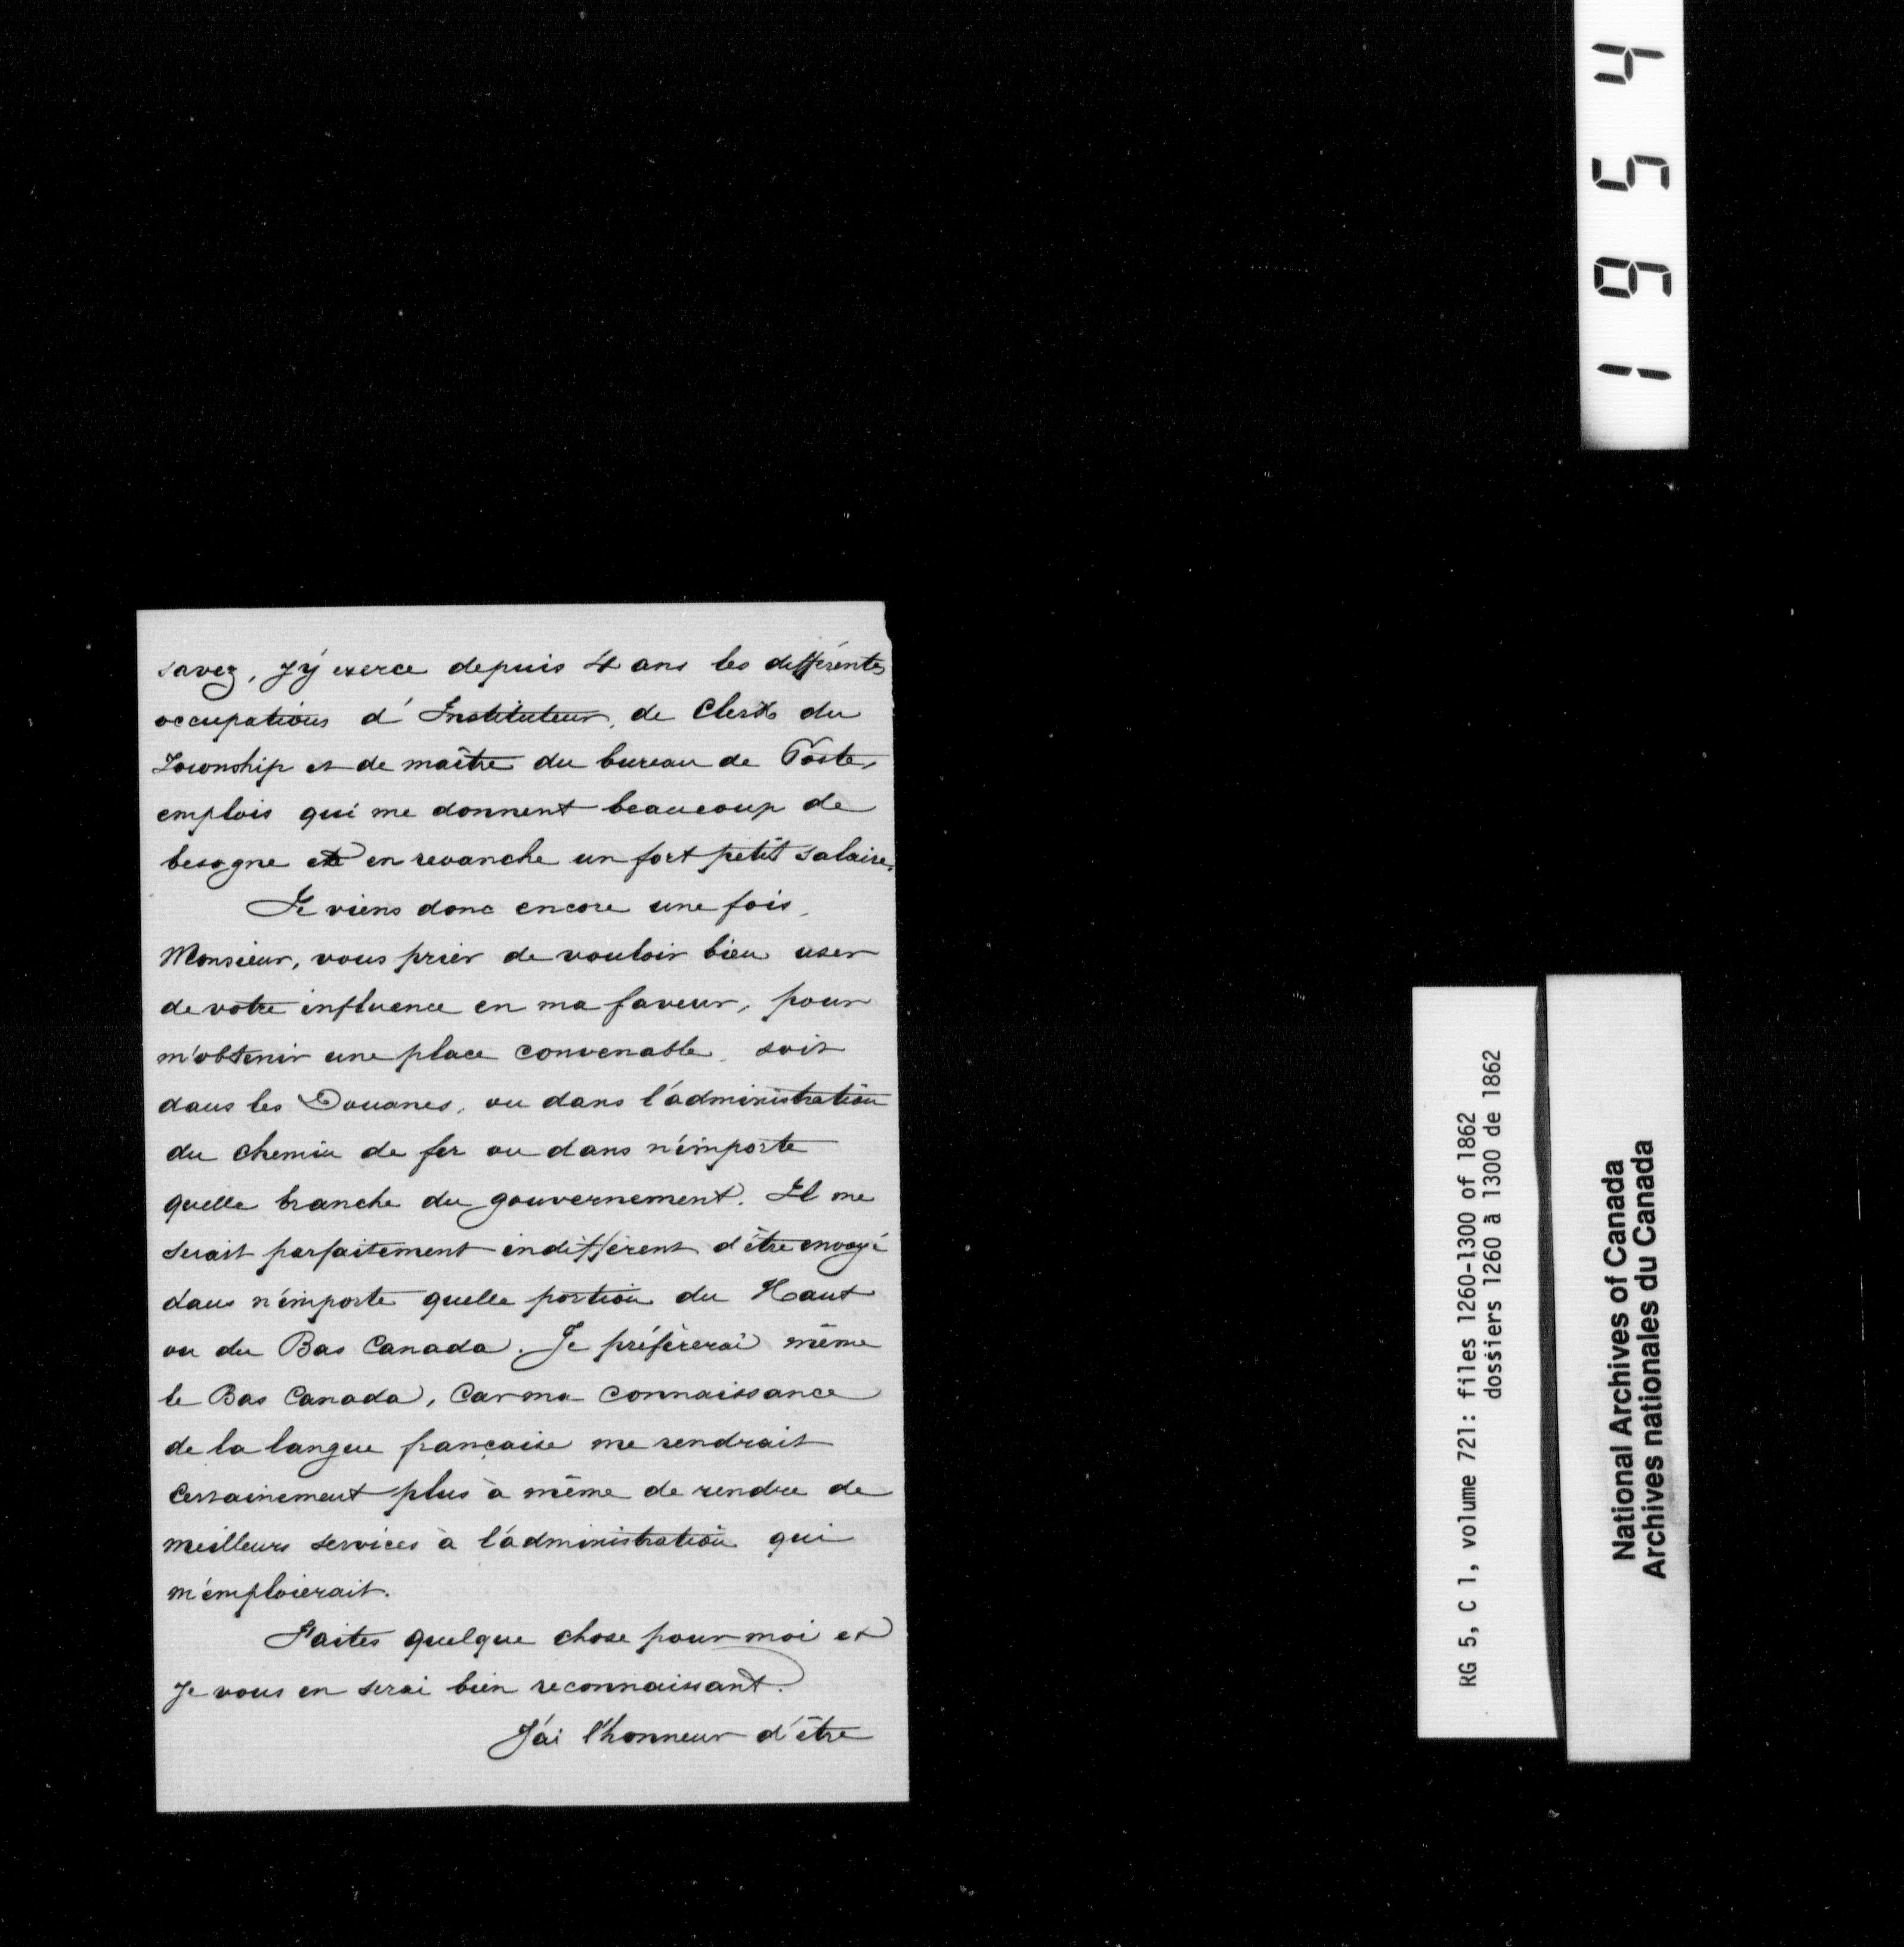 savez, j'y exerce depuis 4 ans les différentes
occupations d'Instituteur, de Clerk du
Township et de maître du bureau de Poste,
emplois qui me donnent beaucoup de
besogne et en revanche un fort petit salaire.
Je viens donc encore une fois,
Monsieur, vous prier de vouloir bien user
de votre influence en ma faveur, pour
m'obtenir une place convenable, soit
dans les Douanes, ou dans l'administration
du chemin de fer ou dans n'importe
quelle branche du gouvernement. Il me
serait parfaitement indifférent d'être envoyé
dans n'importe quelle portion du Haut
ou du Bas Canada. Je préfèrerai même
le Bas Canada, Car ma connaissance
de la langue française me rendrait
Certainement plus à même de rendre de
meilleurs services à l'administration qui
m'emploierait.
Faites quelque chose pour moi et
je vous en serai bien reconnaissant.
J'ai l'honneur d'être
4561
RG 5, C 1, volume 721: files 1260-1300 of 1862
dossiers 1260 à 1300 de 1862
National Archives of Canada
Archives nationales du Canada